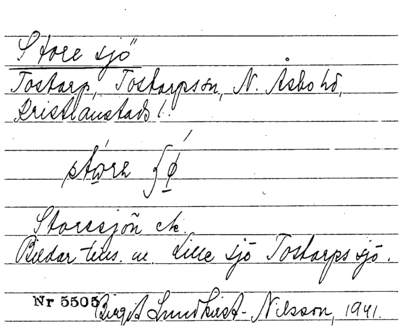 Store sjö
Tostarp, Tostarpsön, N. Åsbo hd,
Kristianstads l.
störe ʃö́
Storesjön ek.
Bildar tills. m. Lille sjö Tostarps sjö.
Nr 5505 Birgit Lundkvist-Nilsson, 1941.